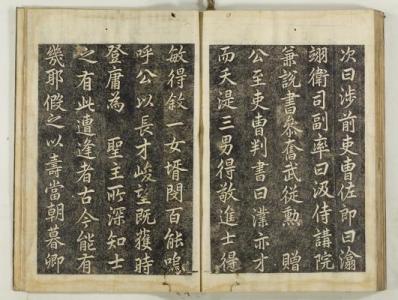 次曰涉前吏曹佐郎曰瀹
翊衛司副率曰汲侍講院
兼說書參奮武從勲贈
公至吏曹判書曰澲亦才
而夭湜三男得敬進士得
敏得敘一女壻閔百能嗚
呼公以長才峻望既獲時
登庸為聖王所深知士
之有此遭逢者古今能有
幾耶假之以壽當朝暮卿